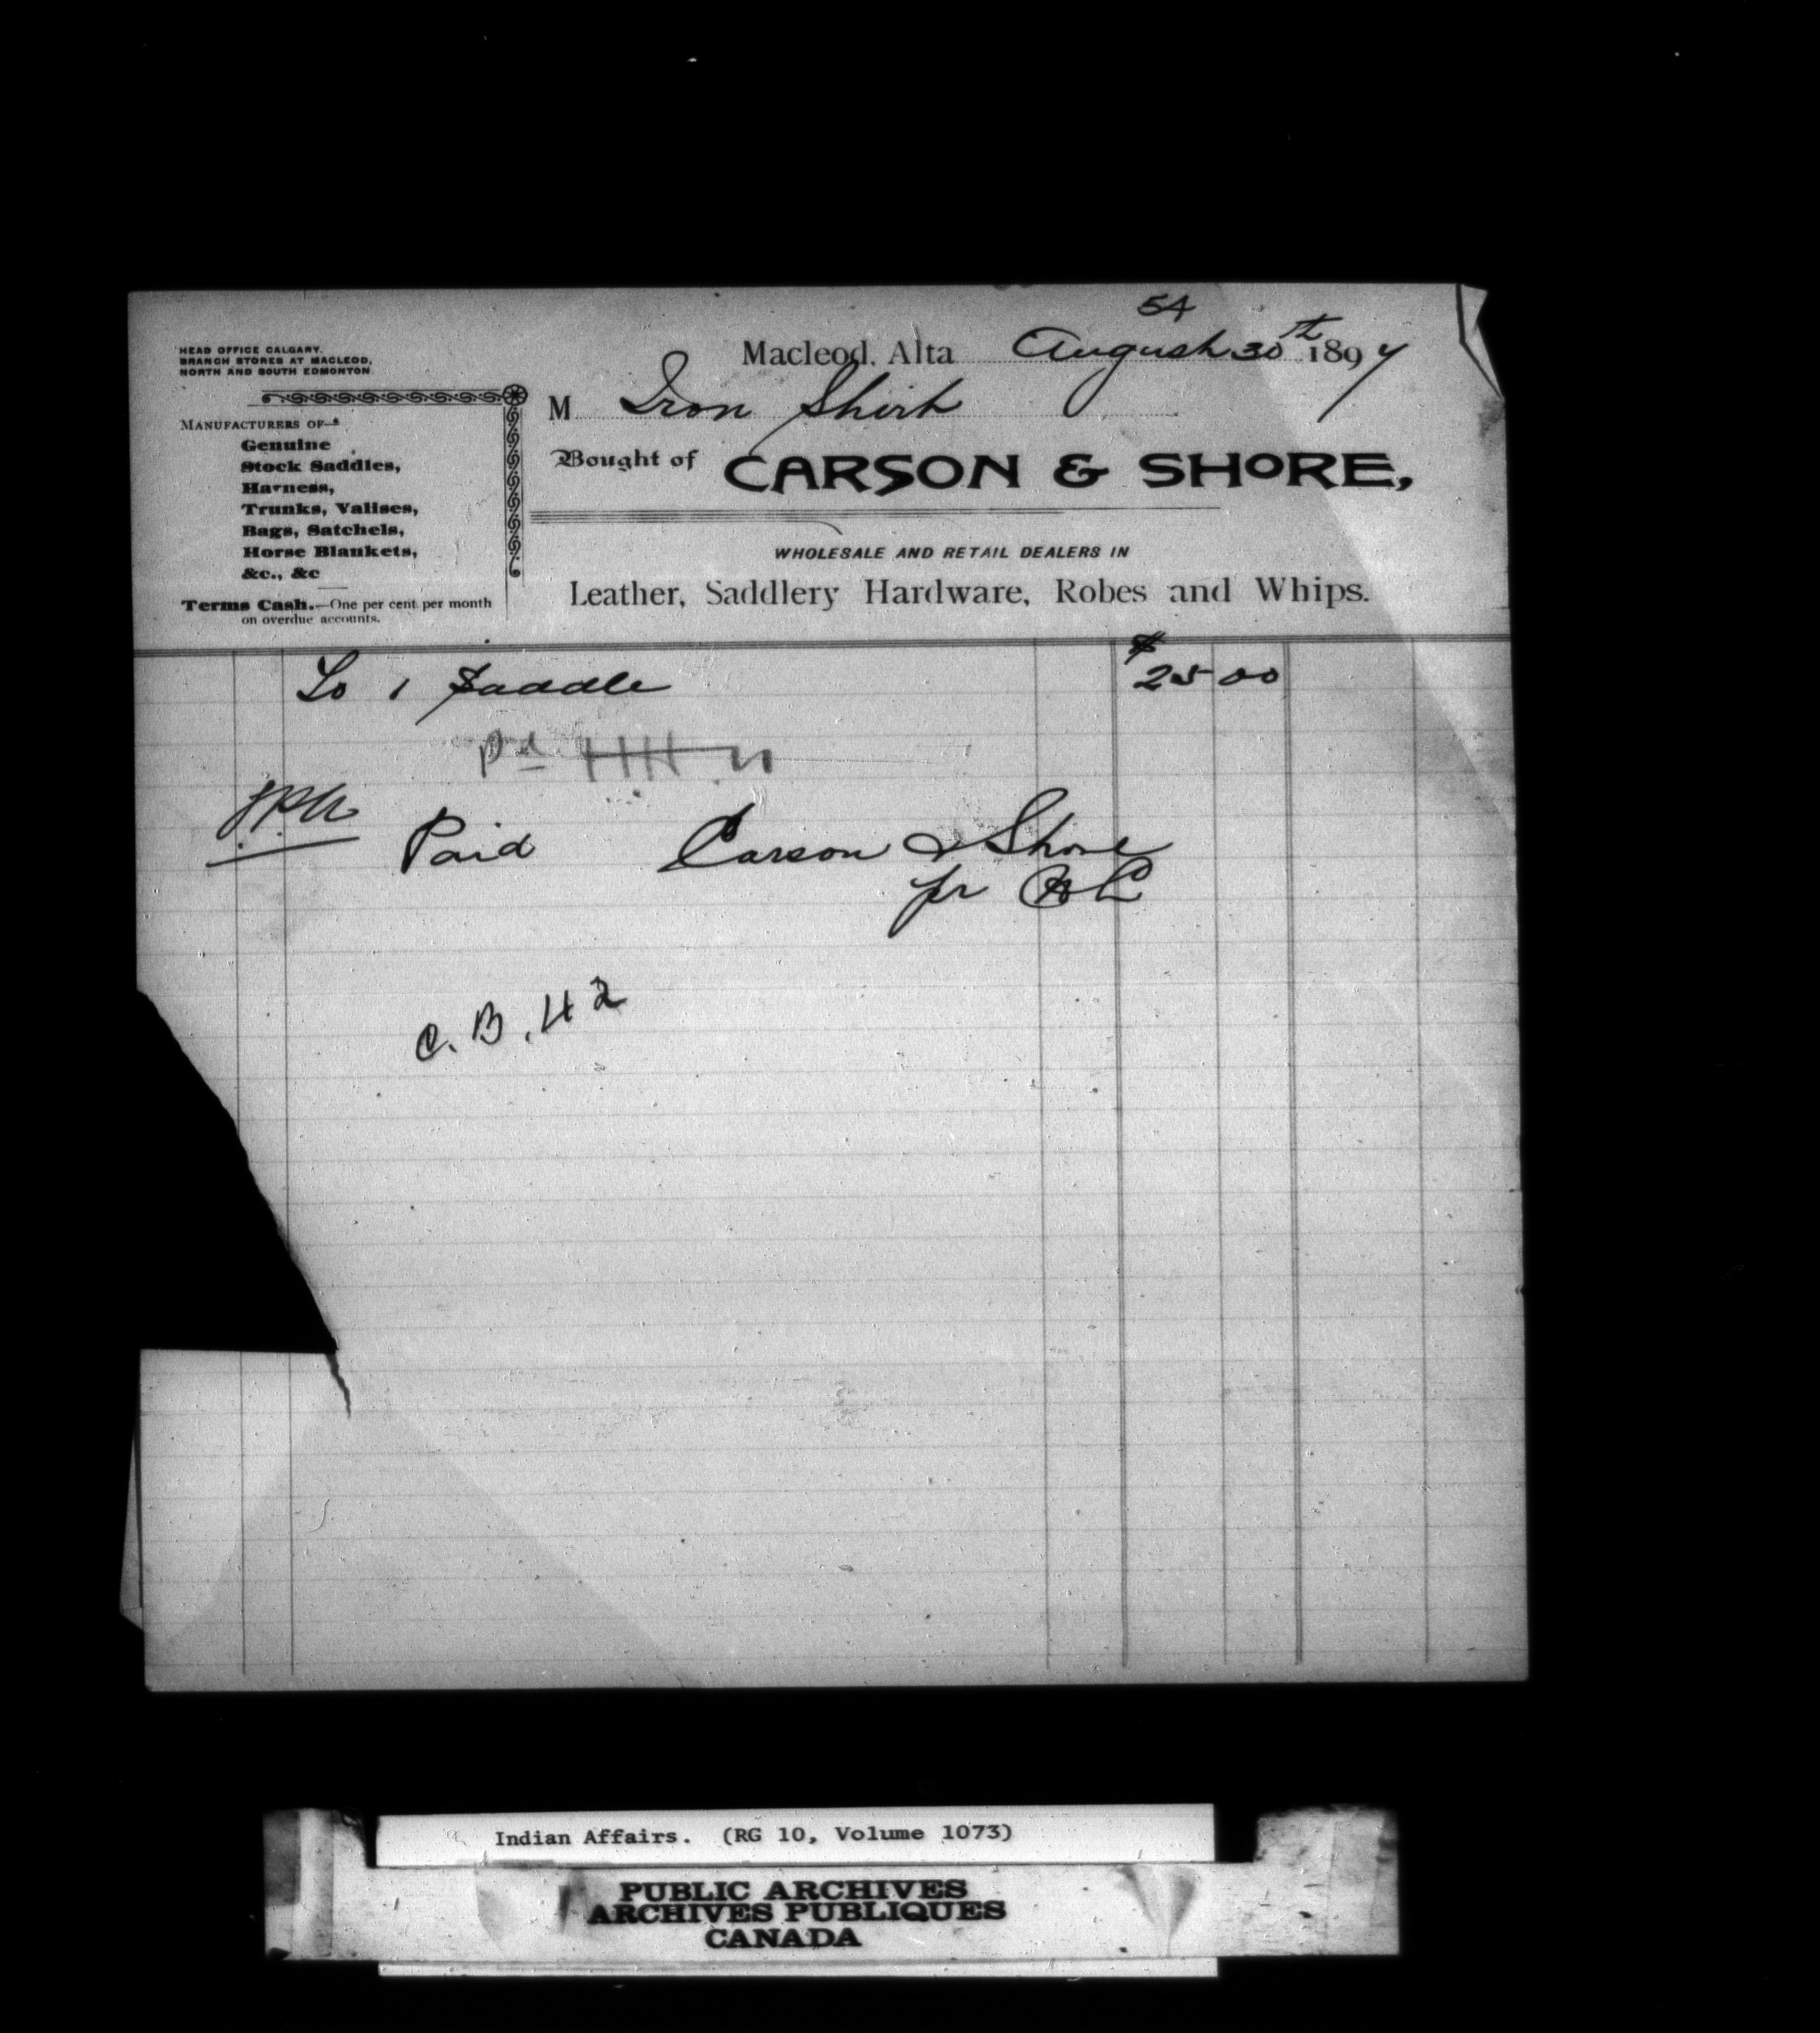 54
HEAD OFFICE CALGARY.
BRANCH STORES AT MACLEOD,
NORTH AND SOUTH EDMONTON.
Macleod, Alta August 30th 1897
M Iron Shirt
MANUFACTURERS OF
Genuine
Stock Saddles,
Harness,
Trunks, Valises,
Bags, Satchels,
Horse Blankets,
&c., &c
Terms Cash.—One per cent per month
on overdue accounts.
Bought of CARSON & SHORE,
WHOLESALE AND RETAIL DEALERS IN
Leather, Saddlery Hardware, Robes and Whips.
To 1 Saddle $25 00
Pd
Paid Carson & Shore
pr
C.B. 42
Indian Affairs. (RG 10, Volume 1073)
PUBLIC ARCHIVES
ARCHIVES PUBLIQUES
CANADA